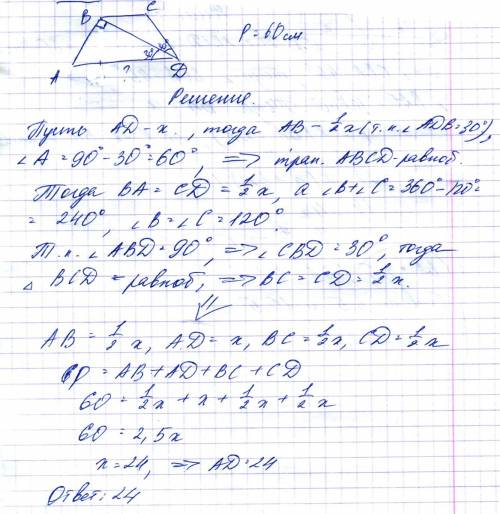 B C
P = 60 см
30° 30°
A ? D
Решение.
Пусть AD - x. , тогда AB - 1/2 x (т.к. ∠ADB = 30°),
∠A = 90° - 30° = 60°, => трап. ABCD - равноб.
Тогда BA = CD = 1/2 x, а ∠B + ∠C = 360° - 120° =
= 240°, ∠B = ∠C = 120°.
Т.к. ∠ABD = 90°, => ∠CBD = 30°, тогда
△ BCD - равноб, => BC = CD = 1/2 x.
⇓
AB = 1/2 x, AD = x, BC = 1/2 x, CD = 1/2 x
P = AB + AD + BC + CD
60 = 1/2 x + x + 1/2 x + 1/2 x
60 = 2,5x
x = 24, => AD = 24
Ответ: 24